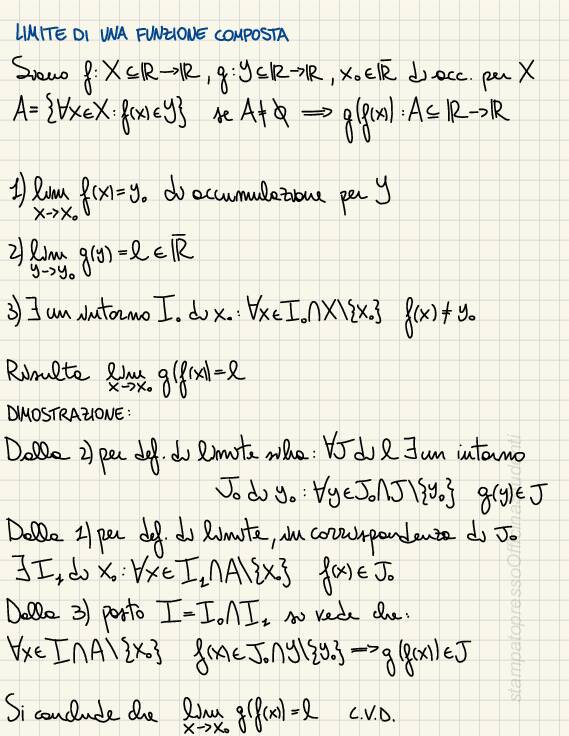 LIMITE DI UNA FUNZIONE COMPOSTA
Siano f: X ⊆ ℝ → ℝ, g: Y ⊆ ℝ → ℝ, x₀ ∈ ℝ̄ di acc. per X
A = {∀x∈X : f(x)∈Y} se A ≠ ∅ ⟹ g(f(x)) : A ⊆ ℝ → ℝ
1) lim x→x₀ f(x) = y₀ di accumulazione per Y
2) lim y→y₀ g(y) = l ∈ ℝ̄
3) ∃ un intorno I₀ di x₀ : ∀x∈I₀∩X\{x₀} f(x) ≠ y₀
Risulta lim x→x₀ g(f(x)) = l
DIMOSTRAZIONE:
Dalla 2) per def. di limite si ha: ∀J di l ∃ un intorno
J₀ di y₀ : ∀y∈J₀∩J\{y₀} g(y)∈J
Dalla 1) per def. di limite, in corrispondenza di J₀
∃ I₁ di x₀ : ∀x∈I₁∩A\{x₀} f(x)∈J₀
Dalla 3) posto I = I₀∩I₁ si vede che:
∀x∈I∩A\{x₀} f(x)∈J₀∩Y\{y₀} ⟹ g(f(x))∈J
Si conclude che lim x→x₀ g(f(x)) = l C.V.D.